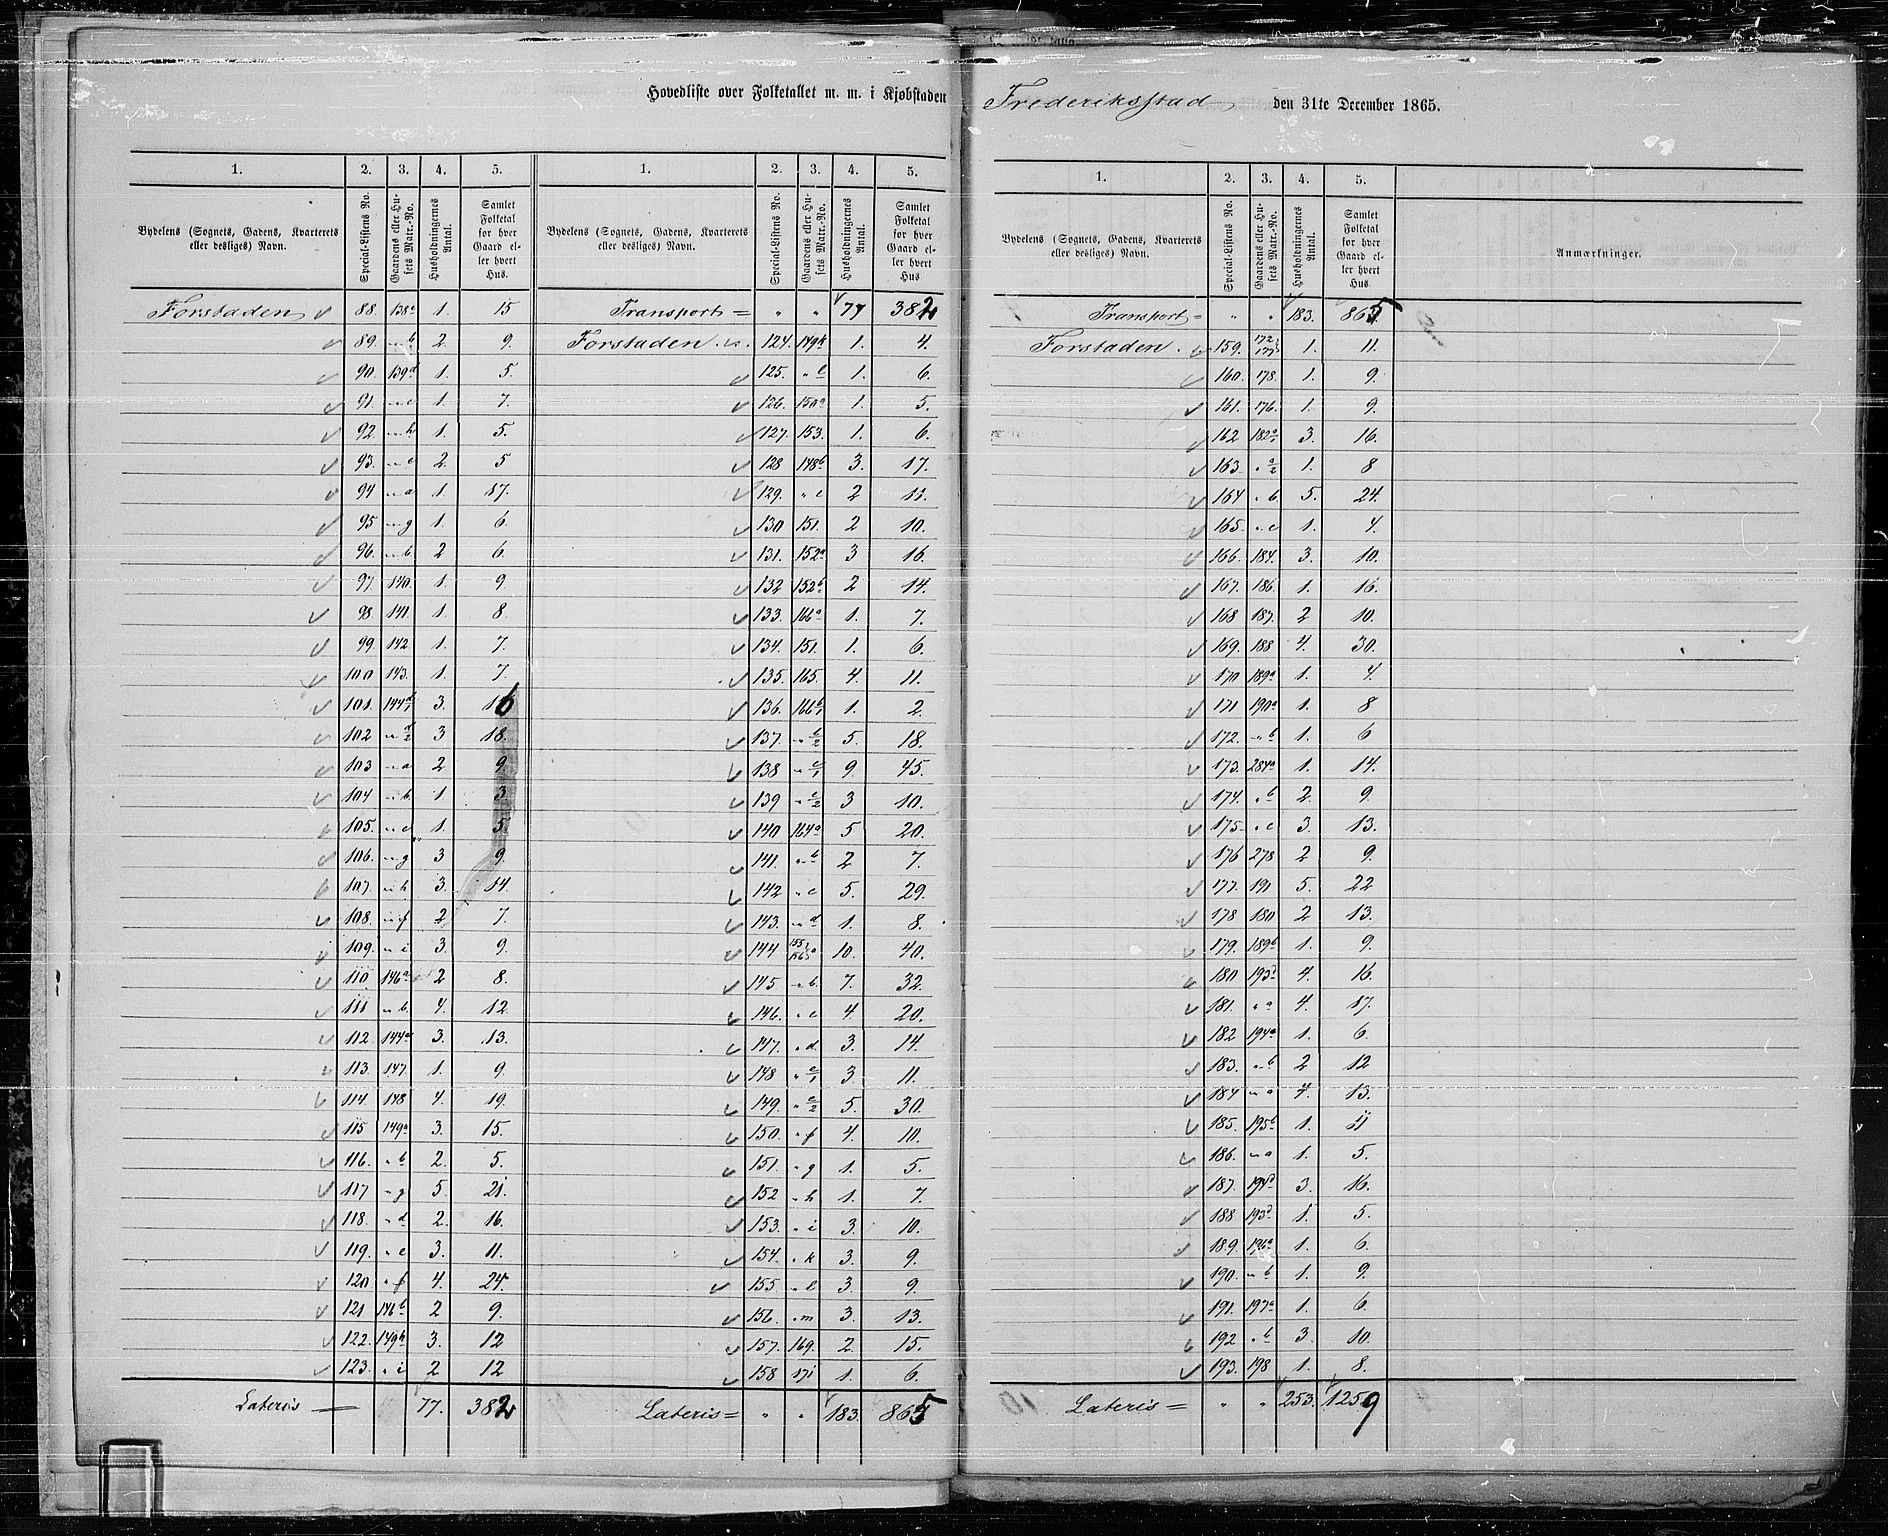 Hovedliste over Folketallet m. m. i Kjøbstaden Frederiksstad den 31te December 1865.
1. 2. 3. 4. 5.
Bydelens (Sognets, Gadens, Kvarterets eller desliges) Navn. Special-Listens No. Gaardens eller Husets Matr.-No. Husholdningernes Antal. Samlet Folketal for hver Gaard eller hvert Hus.
Forstaden 88. 138a 1. 15
89. " b 2. 9.
90. 139d 1. 5.
91. " c 1. 7.
92. " h 1. 5.
93. " e 2. 5
94 " a 1. 17.
95. " g 1. 6.
96. " b 2 6.
97. 140. 1. 9
98. 141. 1. 8.
99. 142. 1. 7.
100 143. 1. 7.
101. 144 d/1 3. 16
102 " d/2 3 18.
103 " a 2 9.
104 " b. 1 3
105. " c 1. 5.
106. " g 3 9.
107. " h 3. 14.
108. " f 2 7.
109. " i 3. 9.
110. 146a 2 8.
111 " b. 4. 12
112. 144a 3. 13.
113. 147. 1. 9.
114. 148 4. 19.
115 149a 3. 15.
116. " b 2. 5.
117 " g 5. 21.
118. " d 2. 16.
119. " c 3. 11.
120 " f 4. 24.
121 146b 2 9.
122. 149h 3. 12
123. " i 2 12
Lateris 77. 382
1. 2. 3. 4. 5.
Bydelens (Sognets, Gadens, Kvarterets eller desliges) Navn. Special-Listens No. Gaardens eller Husets Matr.-No. Husholdningernes Antal. Samlet Folketal for hver Gaard eller hvert Hus
Transport = " " 77 382
Forstaden 124. 149k 1. 4.
125. " l 1. 6.
126. 150a 1. 5.
127. 153. 1. 6.
128 148b 3. 17.
129. " c 2 11.
130 151. 2 10.
131. 152a 3 16
132 152b 2 14.
133. 166a 1. 7.
134. 151. 1. 6.
135. 165. 4. 11.
136. 166 b/1 1. 2.
137. " b/2 5. 18.
138 " c/1 9. 45.
139 " c/2 3 10.
140 164a 5 20.
141. " b 2 7.
142 " c 5. 29.
143. " d 1. 8.
144 155 156 a 10. 40.
145 " b. 7. 32.
146. " c 4 20.
147. " d. 3. 14.
148 " e/1 3. 11.
149. " e/2 5. 30.
150. " f 4. 10.
151. " g 1. 5.
152 " h 1. 7.
153. " i 3. 10.
154. " k 3. 9.
155 " l 3. 9.
156. " m 3. 13.
157. 169. 2 15.
158 171 1. 6.
Lateris = " " 183. 865
1. 2. 3. 4. 5.
Bydelens (Sognets, Gadens, Kvarterets eller desliges) Navn. Special-Listens No. Gaardens eller Husets Matr.-No. Husholdningernes Antal. Samlet Folketal for hver Gaard eller hvert Hus. Anmærkninger.
Transport = " " 183. 865
Forstaden. 159. 172 177 1. 11.
160. 178. 1. 9.
161. 176. 1. 9.
162 182 a/1 3. 16.
163. " a/2 1. 8
164 " b. 5. 24.
165. " c 1. 4.
166. 184. 3. 10.
167. 186. 1. 16.
168 187. 2 10.
169. 188 4. 30.
170 189a 1. 4.
171 190a 1. 8
172. " b 1. 6
173. 284a 1. 14.
174. " b 2. 9.
175. " c 3. 13.
176 278 2 9.
177. 191 5. 22
178 180 2 13.
179. 189b 1. 9.
180 4. 16.
181. " a 4. 17.
182 194a 1. 6.
183. " b 2 12
184 " a 4. 13.
185. 195b 1. 11
186. " a 1. 5.
187. 3. 16.
188 1. 5.
189. 196a 1. 6.
190. " b 1. 9.
191. 197a 1. 6.
192 " b 3. 10.
193. 198 1. 8.
Lateris = " " 253. 1259